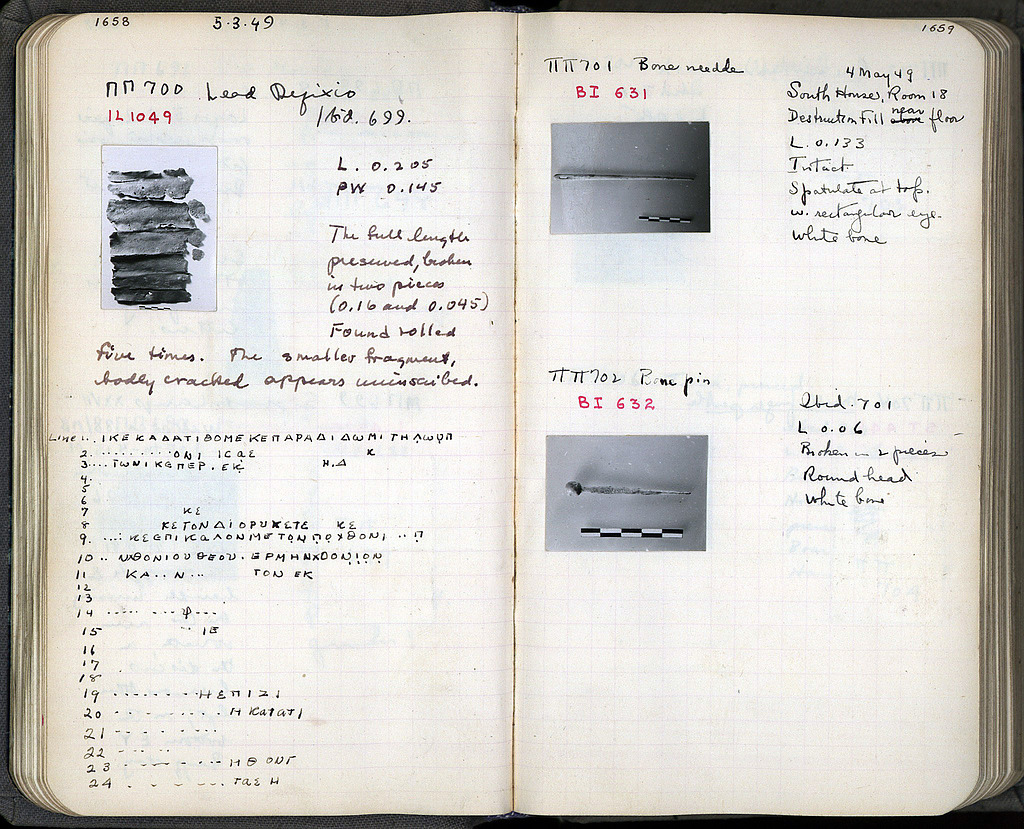 1658
5·3·49
ΠΠ 700 Lead Defixio
IL 1049
Ibid. 699.
L. 0.205
PW 0.145
The full length
preserved, broken
in two pieces
(0.16 and 0.045)
Found rolled
five times. The smaller fragment,
badly cracked appears uninscribed.
Line 1.. ΙΚΕ ΚΑΔΑΤΙΘΟΜΕ ΚΕ ΠΑΡΑΔΙΔΩΜΙ ΤΗ
2. ΟΝΙ ΙCΑΣ Κ
3 ....ΤΩΝΙΚΕΠΕΡ.ΕΚ Η.Δ
4.
5
6
7 ΚΕ
8 ΚΕ ΤΟΝΔΙΟΡΥΚΕΤΕ ΚΕ
9. ...: ΚΕΕΠΙΚΑΛΟΝΜΕΤΟΝΠΟΧΘΟΝΙ .. Π
10 .. ΝΧΘΟΝΙΟΥΘΕΟΥ. ΕΡΜΗΝΧΘΟΝΙΟΝ
11 ΚΑ..Ν... ΤΟΝ ΕΚ
12
13
14 ..... ... φ ...
15 .. ΙΕ
16
17
18
19 ........ΗΕΠΙΖΙ
20 ......... Η ΚΑΤΑΤΙ
21 .........
22 ......
23 ........ Η Θ ΟΝΓ
24 ....... ΤΑΣ Η
1659
ΠΠ 701 Bone needle
BI 631
4 May 49
South House, Room 18
Destruction Fill near floor
L. 0.133
Intact.
Spatulate at top.
w. rectangular eye.
White bone
ΠΠ 702 Bone pin
BI 632
Ibid. 701
L 0.06
Broken in 2 pieces
Round head
White bone